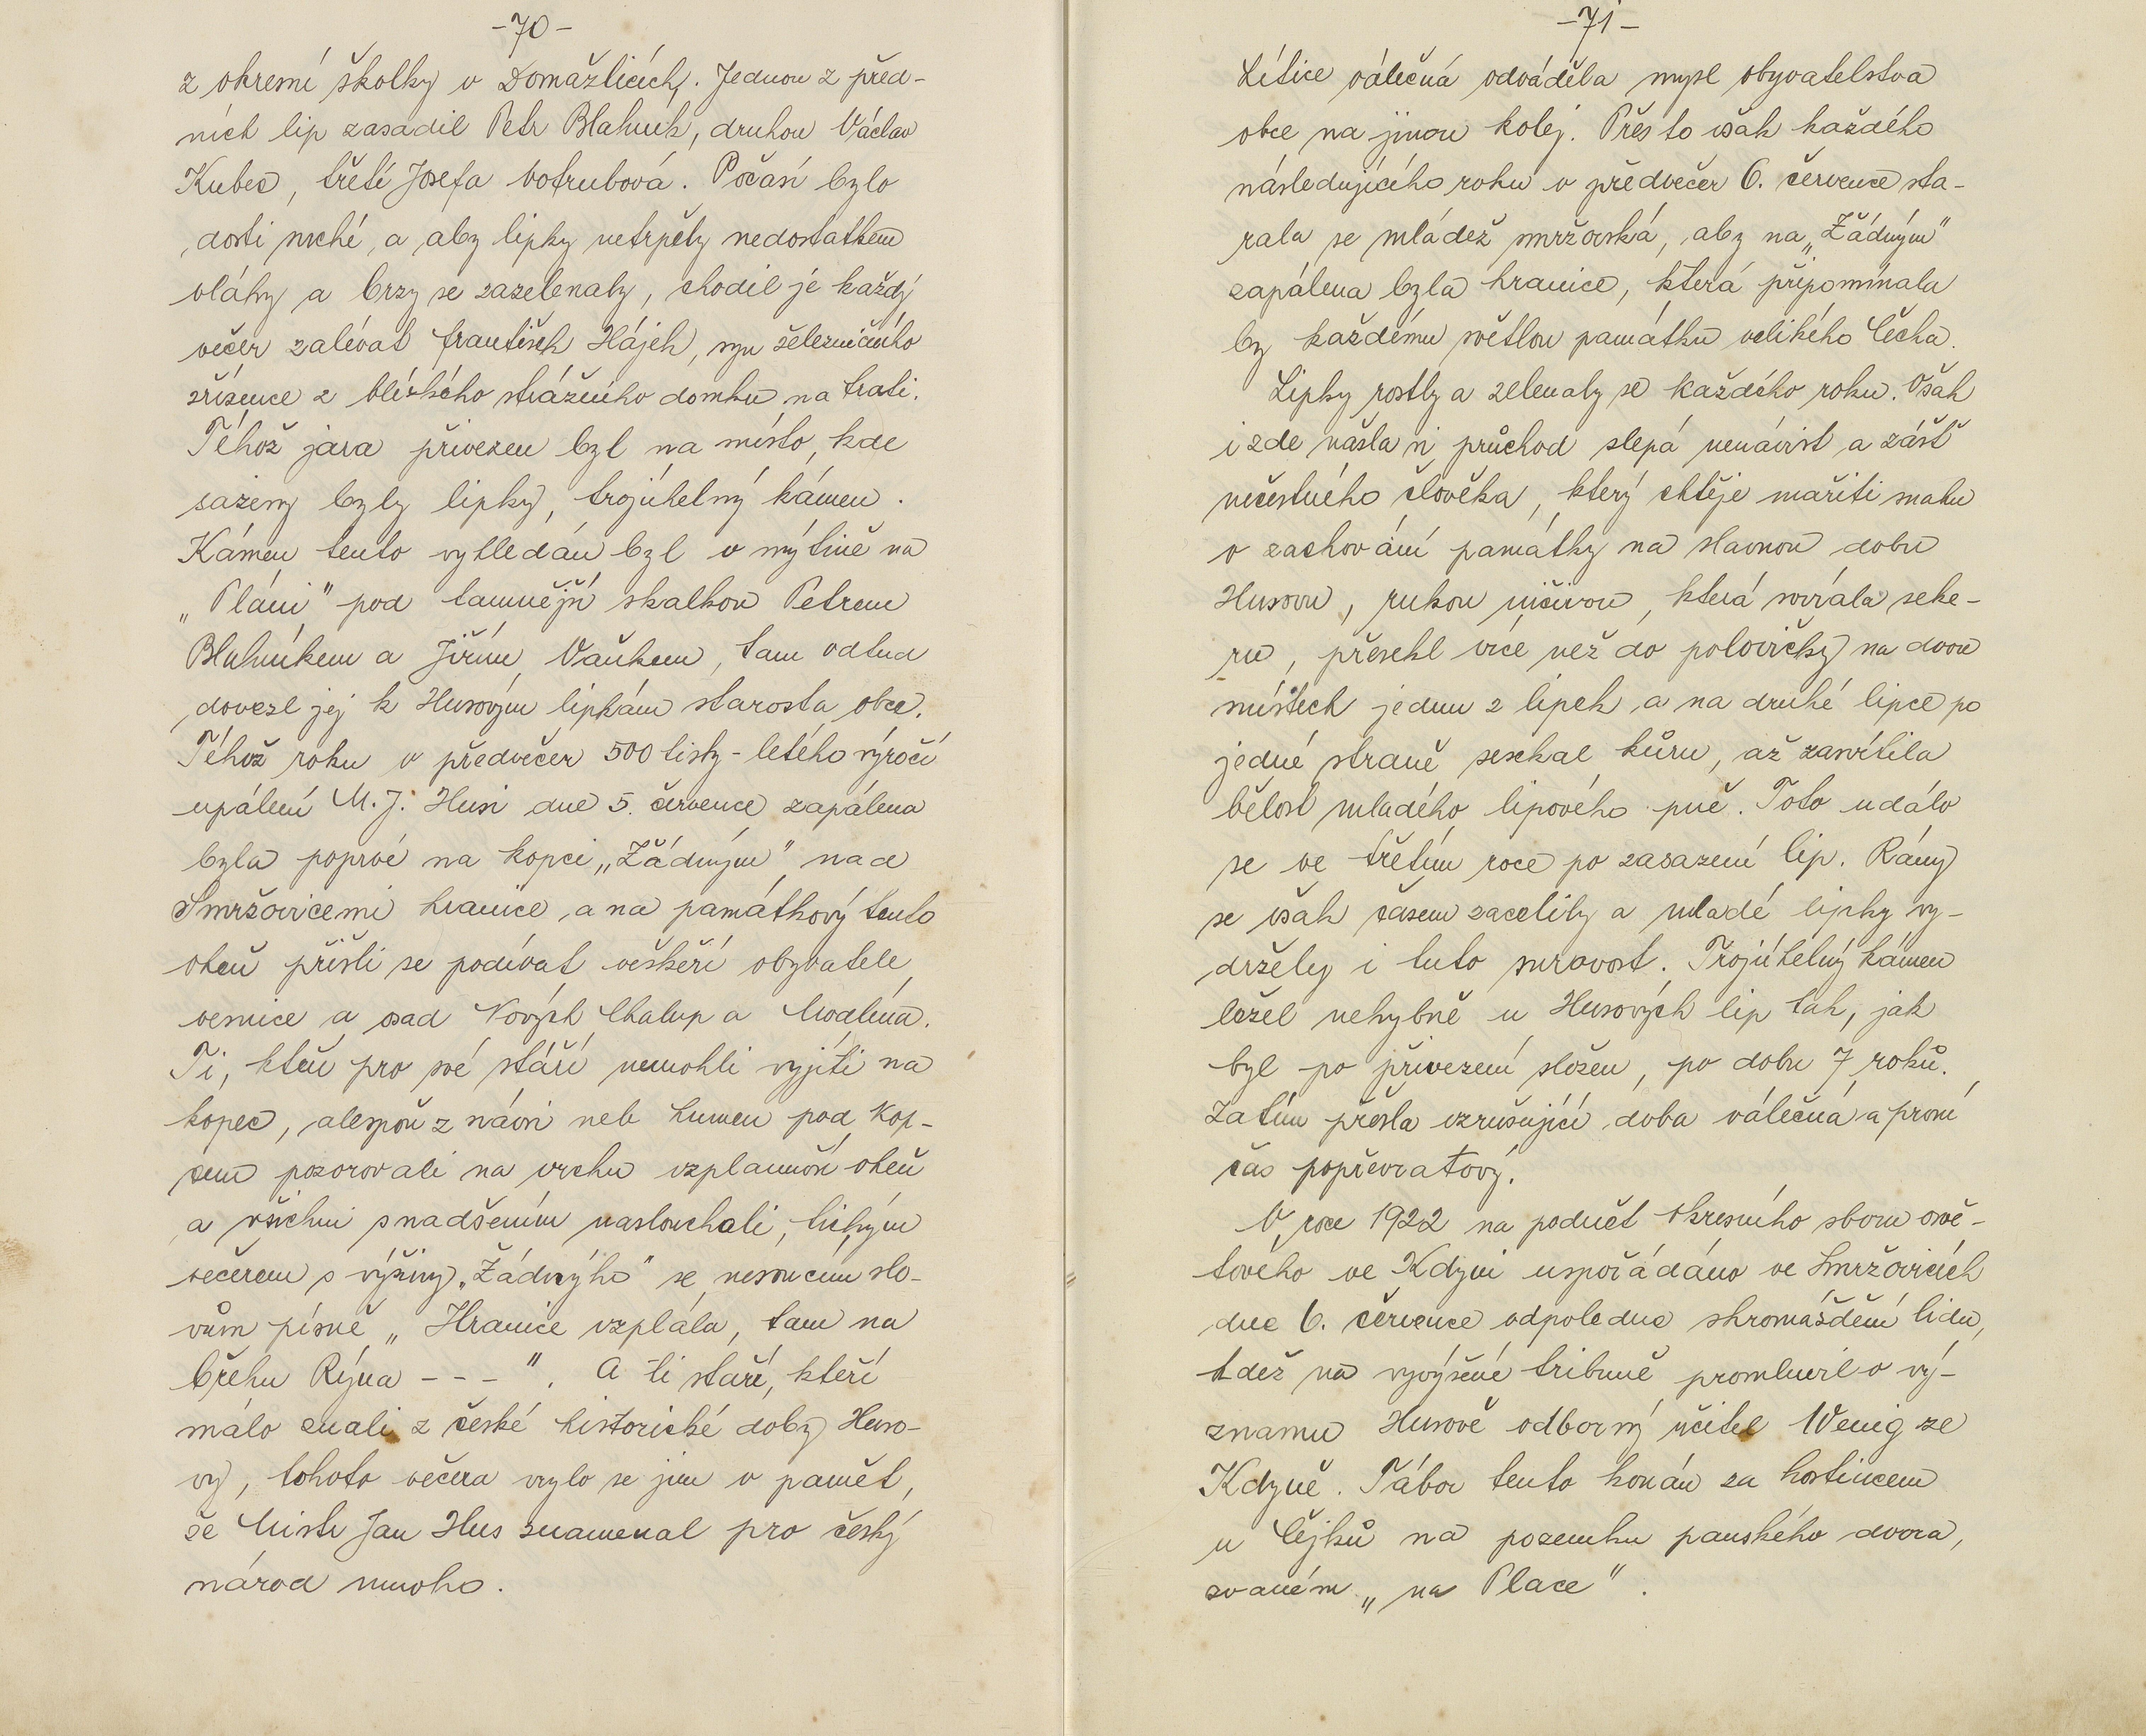 -70-
z okresní školky v Domažlicích. Jednou z před-
ních lip zasadil Petr Blahník, druhou Václav
Kubec, třetí Josefa Votrubová. Počasí bylo
dosti suché, a aby lipky netrpěly nedostatkem
vláhy a brzy se zazelenaly, chodil je každý
večer zalévat František Hájek, syn železničního
zřízence z blízkého strážního domku na trati.
Téhož jara přivezen byl na místo, kde
sázeny byly lipky, trojúhelný kámen.
Kámen tento vyhledán byl v mýtině na
„Pláni" pod tamnější skalkou Petrem
Blahníkem a Jiřím Vaňkem, tam odtud
dovezl jej k Husovým lipkám starosta obce.
Téhož roku v předvečer 500 tisty-letého výročí
upálení M. J. Husi dne 5. července zapálena
byla poprvé na kopci „Žádným" nad
Smržovicemi hranice, a na památkový tento
oheň přišli se podívat veškeří obyvatele
vesnice a osad Nových Chalup a Modlína.
Ti, kteří pro své stáří nemohli vyjíti na
kopec, alespoň z návsi neb humen pod kop-
cem pozorovali na vrchu vzplanuvší oheň
a všichni s nadšením naslouchali, tichým
večerem s výšiny „Žádnýho" se nesoucím slo-
vům písně „Hranice vzplála, tam na
břehu Rýna - - - ". A ti staří, kteří
málo znali z české historické doby Huso-
vy, tohoto večera vrylo se jim v paměť,
že Mistr Jan Hus znamenal pro český
národ mnoho.
-71-
Lítice válečná odváděla mysl obyvatelstva
obce na jinou kolej. Přes to však každého
následujícího roku v předvečer 6. července sta-
rala se mládež smržovská, aby na „Žádným"
zapálena byla hranice, která připomínala
by každému světlou památku velikého Čecha.
Lipky rostly a zelenaly se každého roku. Však
i zde našla si průchod slepá nenávist a zášť
nečestného člověka, který chtěje mařiti snahu
o zachování památky na slavnou dobu
Husovu, rukou ničivou, která svírala seke-
ru, přesekl více než do polovičky na dvou
místech jednu z lipek, a na druhé lipce po
jedné straně sesekal kůru, až zasvítila
bělost mladého lipového pně. Toto událo
se ve třetím roce po zasazení lip. Rány
se však časem zacelily a mladé lipky vy-
držely i tuto surovost. Trojúhelný kámen
ležel nehybně u Husových lip tak, jak
byl po přivezení složen, po dobu 7 roků.
Zatím přešla vzrušující doba válečná a první
čas popřevratový.
V roce 1922 na podnět okresního sboru osvě-
tového ve Kdyni uspořádáno ve Smržovicích
dne 6. července odpoledne shromáždění lidu,
tdež na vyvýšené tribuně promluvil o vý-
znamu Husově odborný učitel Wenig ze
Kdyně. Tábor tento konán za hostincem
u Čejků na pozemku panského dvora,
zvaném „na Place".